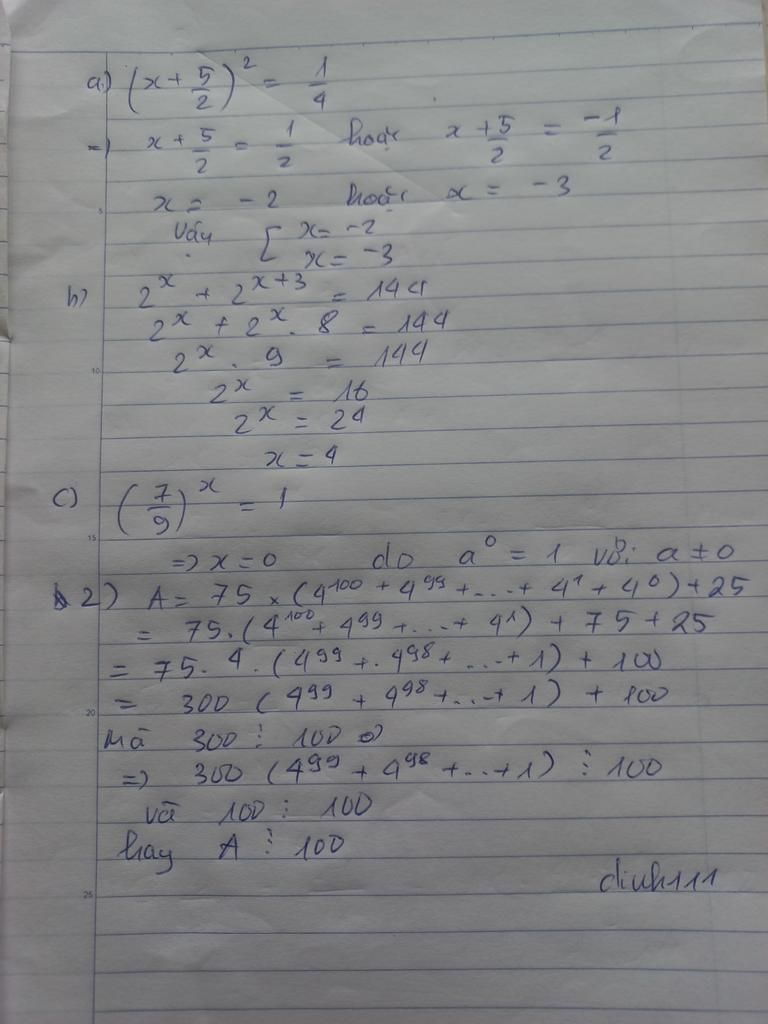 a) (x + 5/2)² = 1/4
=) x + 5/2 = 1/2 hoặc x + 5/2 = -1/2
x = -2 hoặc x = -3
Vậy [ x = -2
x = -3
b) 2^x + 2^(x+3) = 144
2^x + 2^x . 8 = 144
2^x . 9 = 144
2^x = 16
2^x = 24
x = 4
c) (7/9)^x = 1
=> x = 0 do a⁰ = 1 với a ≠ 0
2) A = 75 × (4¹⁰⁰ + 4⁹⁹ + ... + 4¹ + 4⁰) + 25
= 75 . (4¹⁰⁰ + 4⁹⁹ + ... + 4¹) + 75 + 25
= 75 . 4 . (4⁹⁹ + 4⁹⁸ + ... + 1) + 100
= 300 (4⁹⁹ + 4⁹⁸ + ... + 1) + 100
Mà 300 ⋮ 100
=) 300 (4⁹⁹ + 4⁹⁸ + ... + 1) ⋮ 100
và 100 ⋮ 100
hay A ⋮ 100
dinh111
5
10
15
20
25